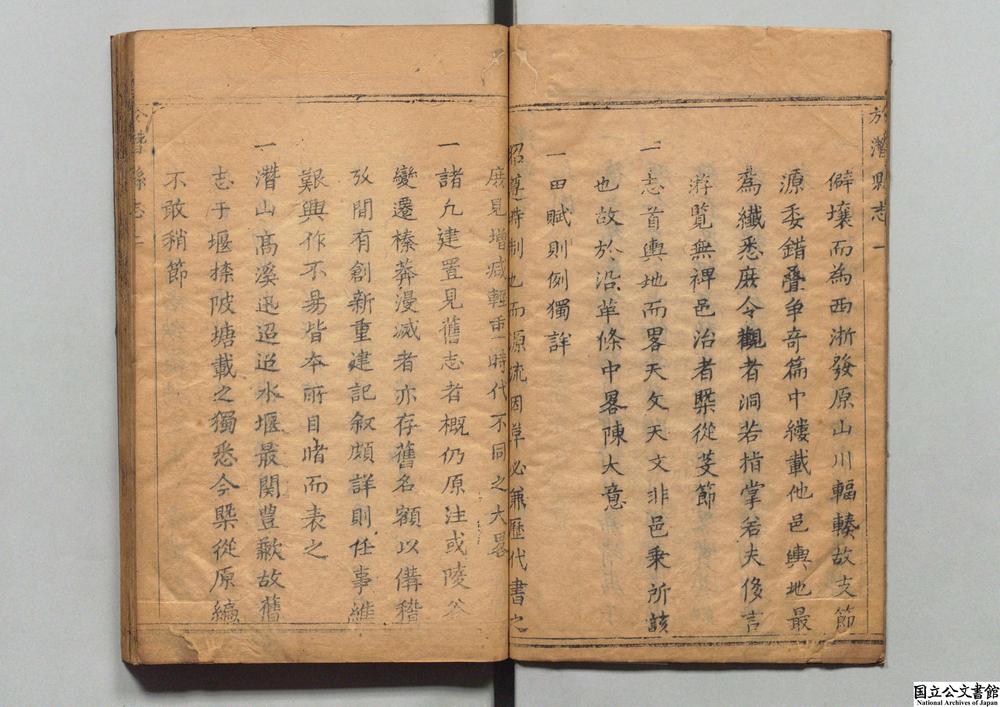 於潛縣志 一
僻壤而為西浙發原山川輻輳故支節
源委錯疊爭奇篇中縷載他邑輿地最
為纖悉庶令觀者洞若指掌若夫侈言
游覽無裨邑治者槩從芟節
一志首輿地而畧天文天文非邑乘所該
也故於沿革條中畧陳大意
一田賦則例獨詳
昭尊時制也而源流因革必兼歷代書之
庶見增減輕重時代不同之大畧
一諸凡建置見舊志者概仍原注或陵谷
變遷榛莽漫滅者亦存舊名額以備稽
攷間有創新重建記叙頗詳則任事維
艱興作不易皆夲所目睹而表之
一潛山高溪迅迢迢水堰最関豊歉故舊
志于堰㙇陂塘載之獨悉今槩從原編
不敢稍節
於潛縣志 二
国立公文書館
National Archives of Japan